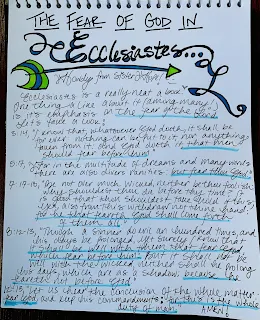 THE FEAR OF GOD IN
Ecclesiastes...
A study from Sister
"Ecclesiastes is a really neat a book!
One thing I like about it (among many!)
is it's emphasis on the fear of the Lord.
Let's have a look!
3:14, "I know that, whatsoever God doeth, it shall be
for ever: nothing can be put to it, nor anything
taken from it: and God doeth it, that men
should fear before him."
5:7, "For in the multitude of dreams and many words
there are also divers vanities: but fear thou God."
7:17-18, "Be not over much wicked, neither be thou foolish:
why shouldest thou die before thy time? It
is good that thou shouldest take hold of this;
yea, also from this withdraw not thine hand:
for he that feareth God shall come forth
of them all."
8:12-13, "Though a sinner do evil an hundred times, and
his days be prolonged, yet surely I know that
it shall be well with them that fear God,
which fear before him: But it shall not be
well with the wicked, neither shall he prolong
his days, which are as a shadow; because he
feareth not before God."
12:13, "Let us hear the conclusion of the whole matter:
Fear God, and keep his commandments: for this is the whole
duty of man." AMEN!